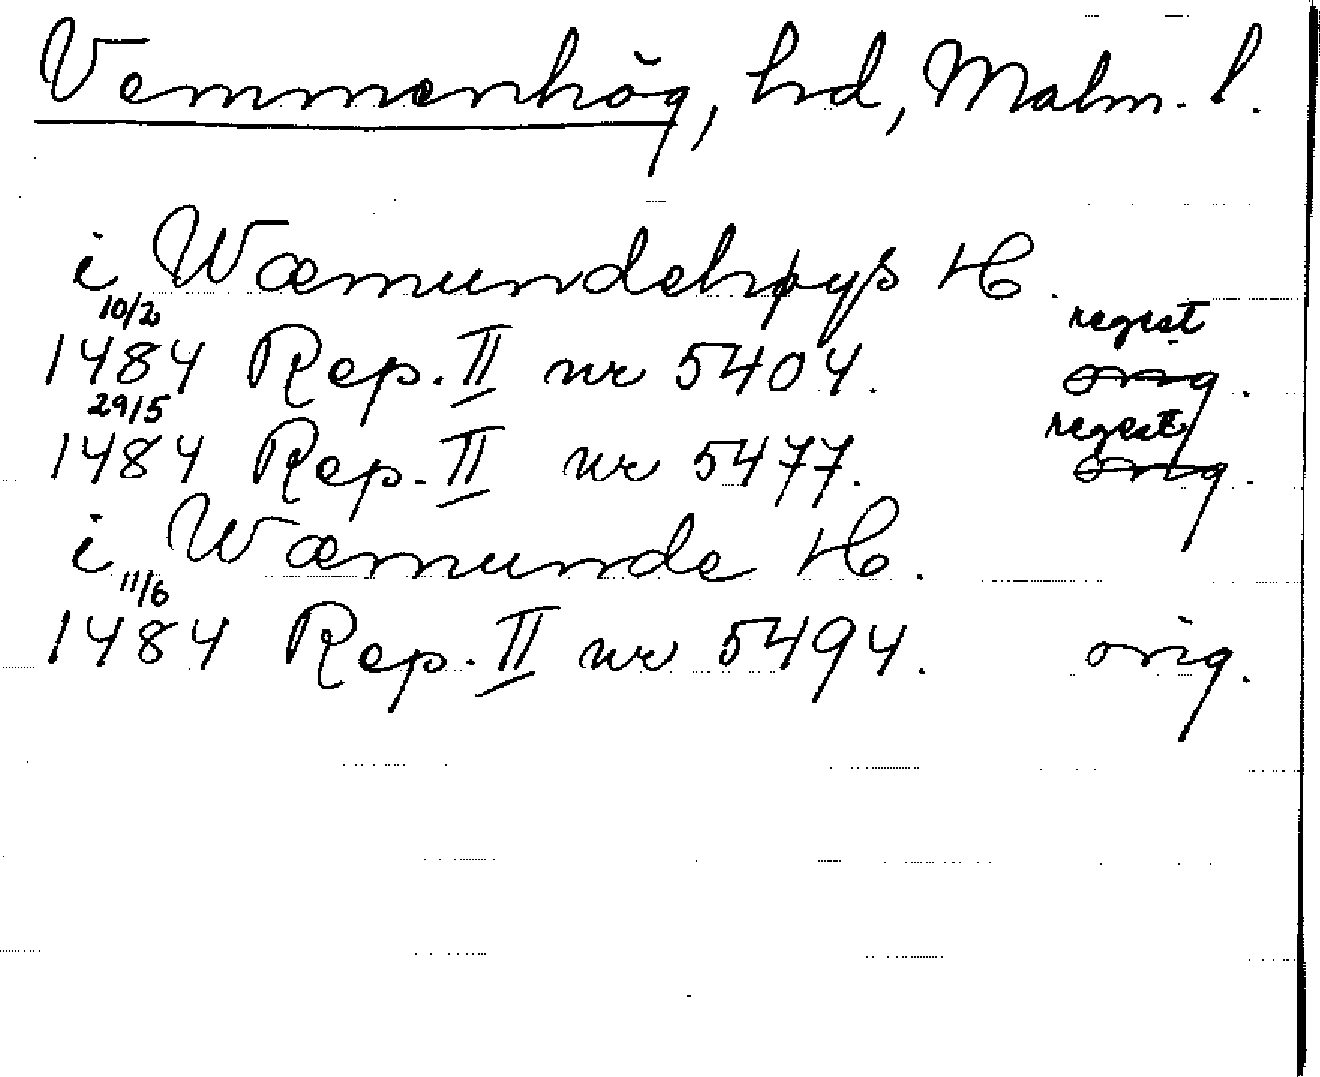 Vemmenhög, hd, Malm. l.
i Wæmundehøyß H.
10/2 regest
1484 Rep. II nr 5404. orig.
29/5 regest
1484 Rep. II nr 5477. orig.
i Wæmunde H.
11/6
1484 Rep. II nr 5494. orig.